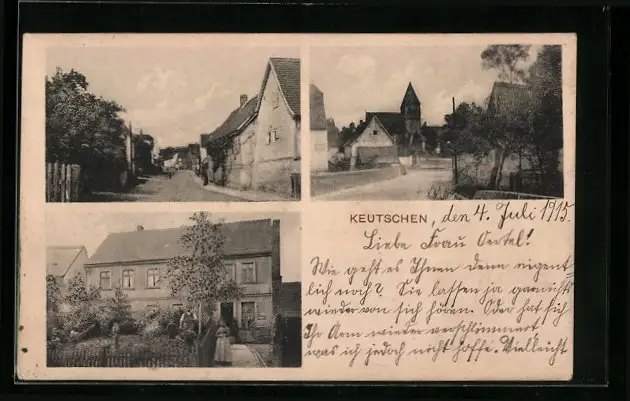 KEUTSCHEN, den 4. Juli 1915
Liebe Frau Oertel!
Wie geht es Ihnen denn eigent
lich noch? Sie lassen ja garnicht
wieder von sich hören. Oder hat sich
Ihr Arm wieder verschlimmert,
was ich jedoch nicht hoffe. Vielleicht